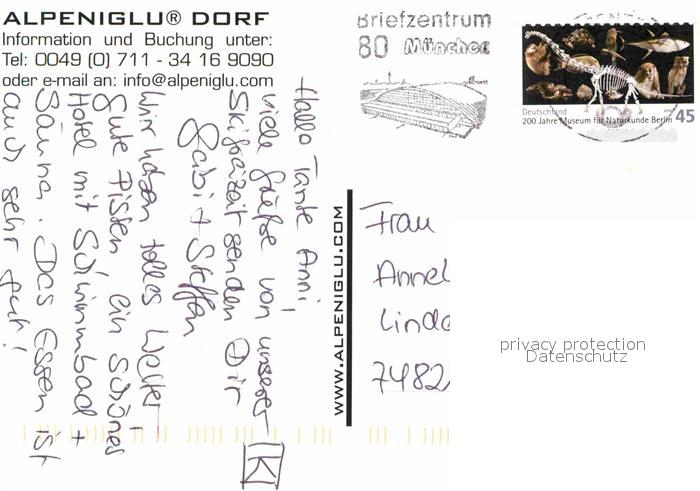 ALPENIGLU® DORF
Information und Buchung unter:
Tel: 0049 (0) 711 - 34 16 9090
oder e-mail an: info@alpeniglu.com
Briefzentrum
80 München
Deutschland
45
200 Jahre Museum für Naturkunde Berlin
Hallo Tante Anni,
viele Grüße von unserer
Skifreizeit senden Dir
Gabi + Steffen
Wir haben tolles Wetter!
Gute Pisten, ein schönes
Hotel mit Schwimmbad +
Sauna. Das Essen ist
auch sehr gut!
K
WWW.ALPENIGLU.COM
Frau
Annel
Linde
7482
privacy protection
Datenschutz